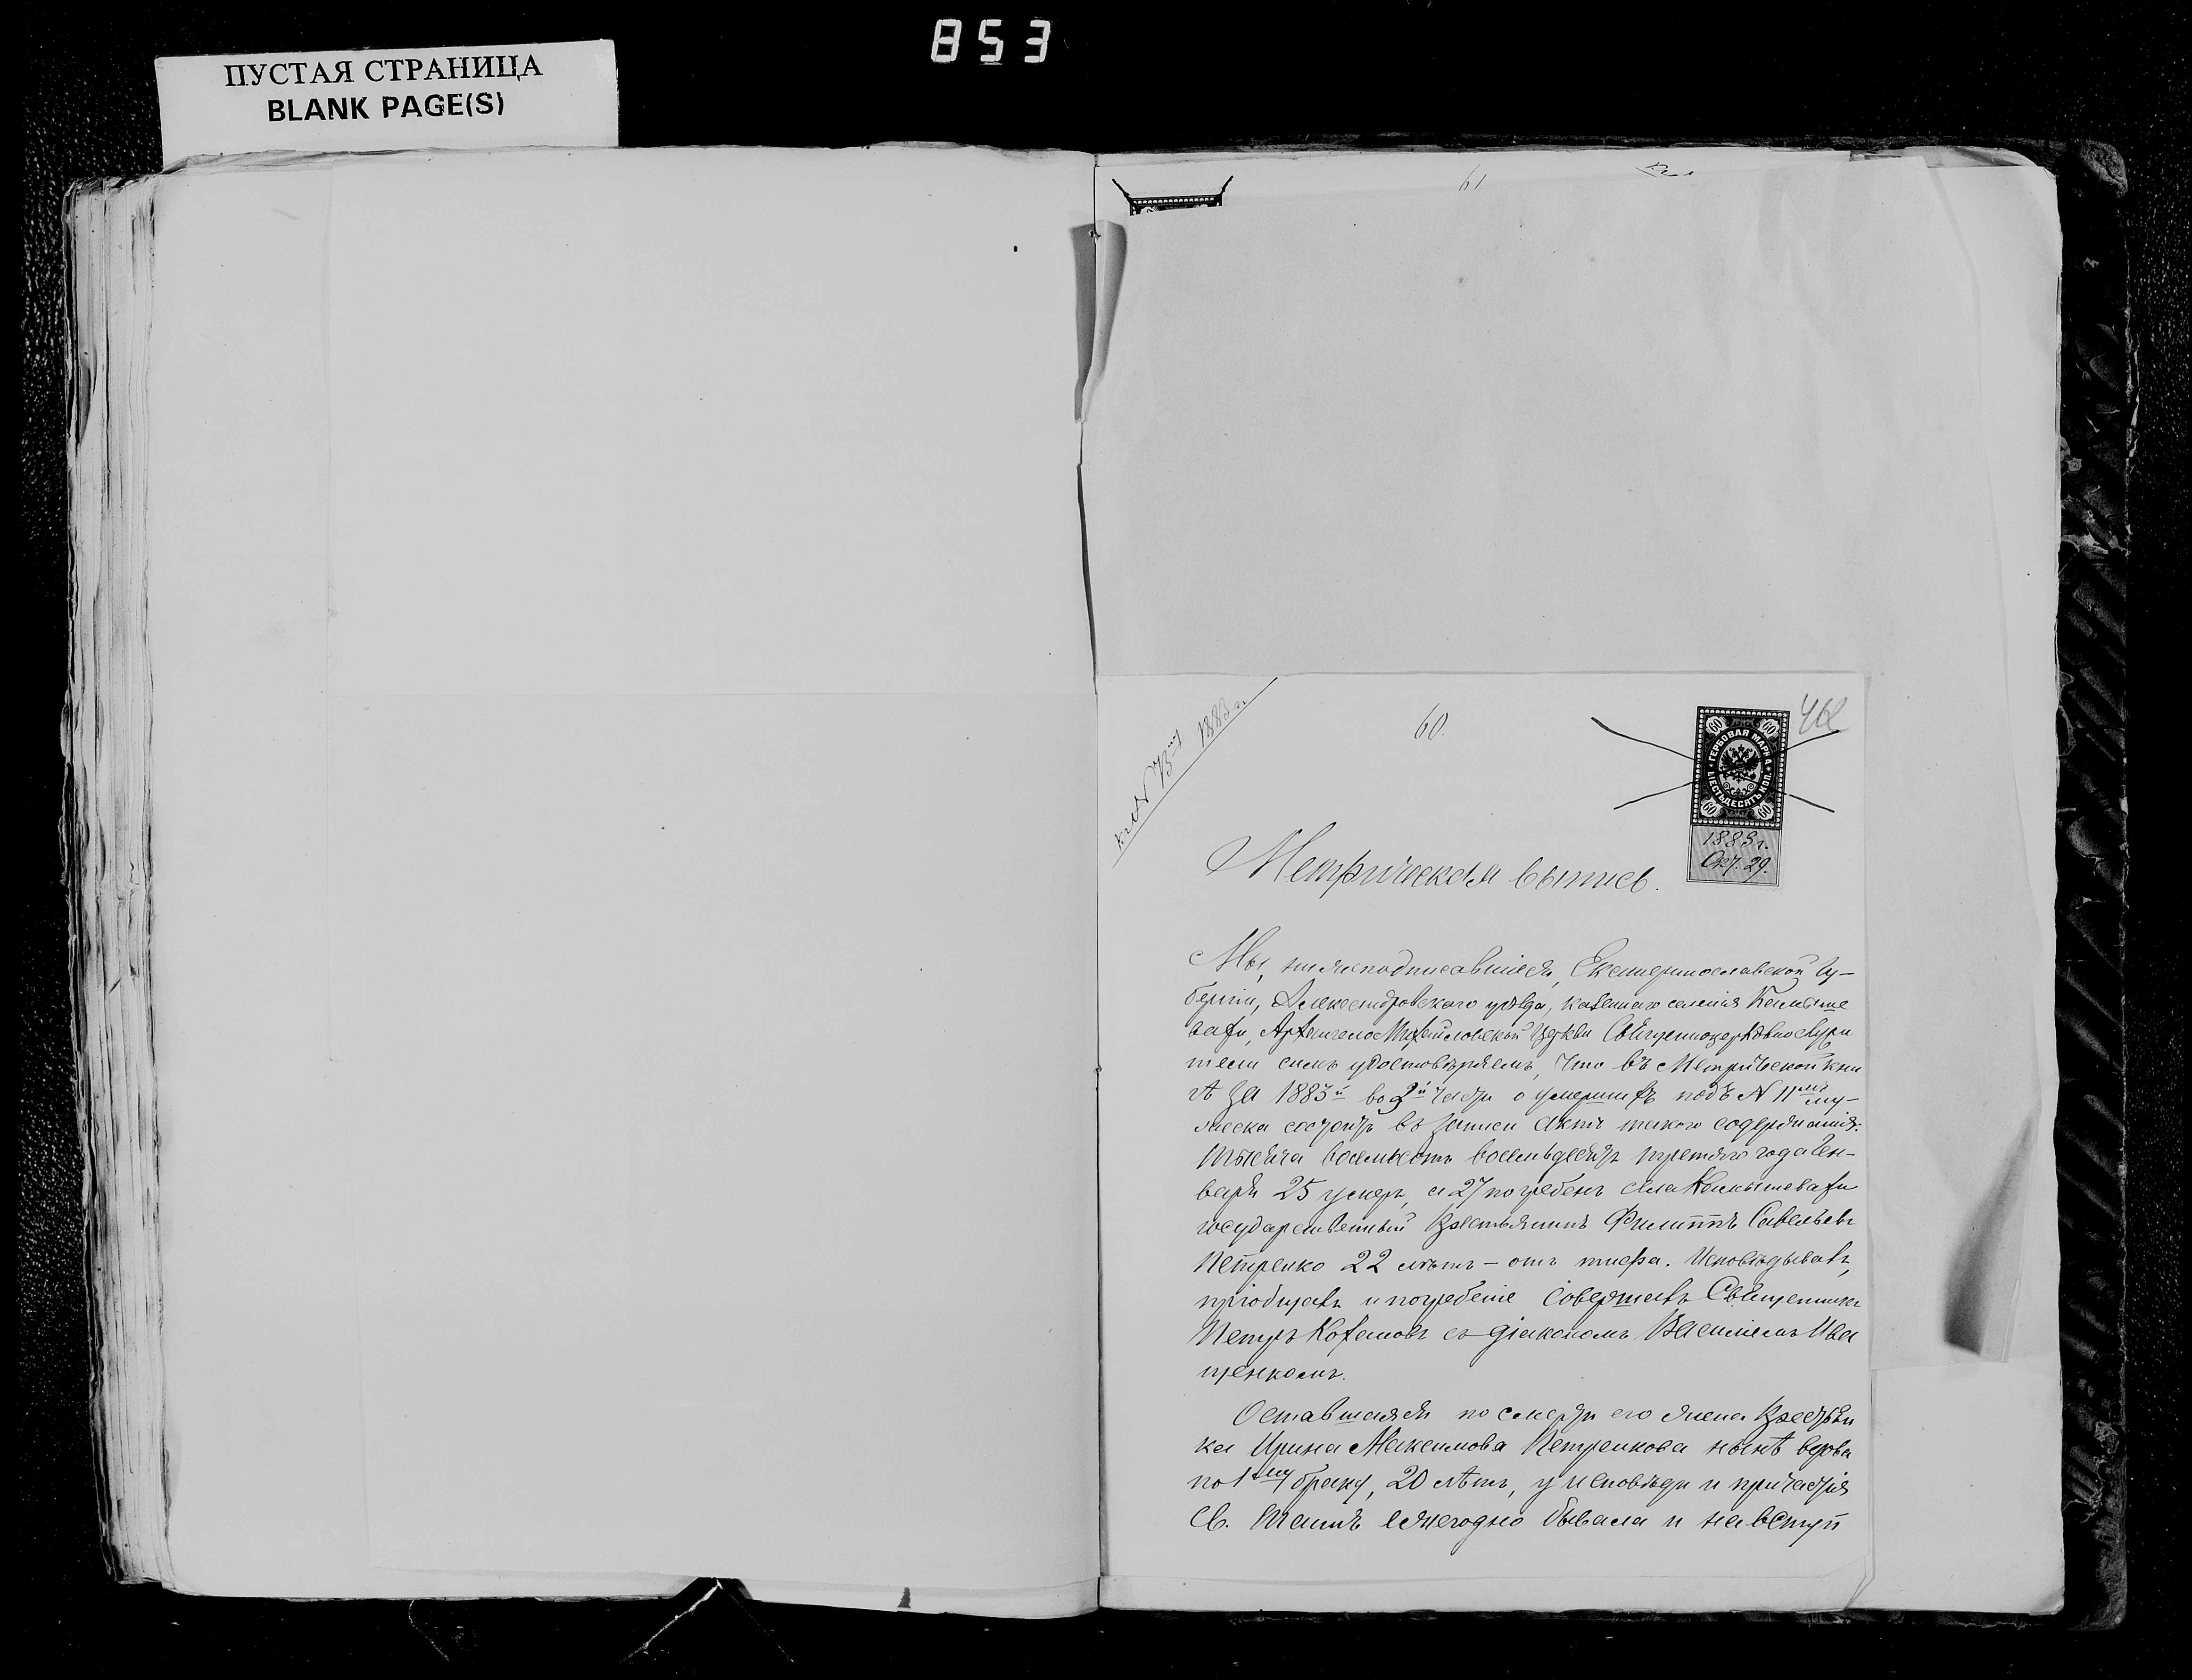 853
ПУСТАЯ СТРАНИЦА
BLANK PAGE(S)
61
60.
ГЕРБОВАЯ МАРКА
ШЕСТЬДЕСЯТЪ КОП.
60 60 60 60
1883 г.
Окт. 29.
къ N 73му 1883 г.
Метрическая выпись.
Мы, нижеподписавшіеся, Екатеринославской Гу-
берніи, Александровскаго уѣзда, казеннаго селенія Камыше
вахи, Архангело Михайловской Церкви Священноцерковнослужи
тели симъ удостовѣряемъ, что въ Метрической кни
гѣ за 1883й во 3й части о умершихъ подъ N 11мъ му-
жеска состоитъ въ записи актъ такого содержанія:
Тысяча восемьсотъ восемьдесятъ третьяго года Ген-
варя 25 умеръ, а 27 погребенъ села Камышевахи
государственный крестьянинъ Филиппъ Савельевъ
Петренко 22 лѣтъ – отъ тифа. Исповѣдывалъ,
пріобщалъ и погребеніе совершалъ Священникъ
Петръ Кохановъ съ діакономъ Василіемъ Ива
щенкомъ.
Оставшаяся по смерти его жена крестьян
ка Ирина Максимова Петренкова нынѣ вдова
по 1му браку, 20 лѣтъ, у исповѣди и причастія
Св. Таинъ ежегодно бывала и на вступ